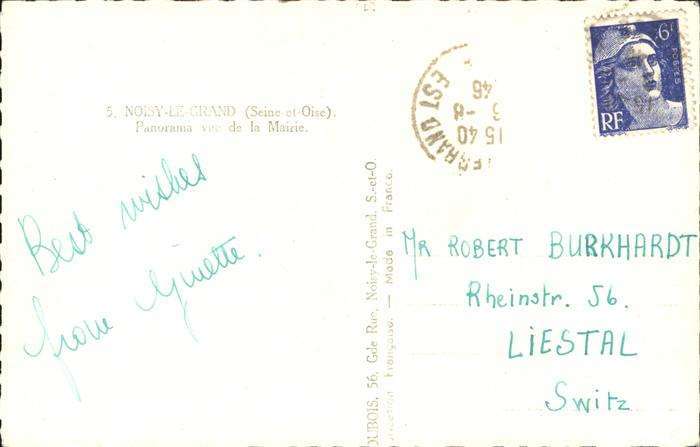 5. NOISY-LE-GRAND (Seine-et-Oise).
Panorama vue de la Mairie.
Best wishes
from Ginette.
DUBOIS, 56, Gde Rue, Noisy-le-Grand. S.-et-O.
Française. — Made in France.
EST
15 40
-8
46
6F
POSTES
RF
Mr ROBERT BURKHARDT
Rheinstr. 56.
LiESTAL
Switz